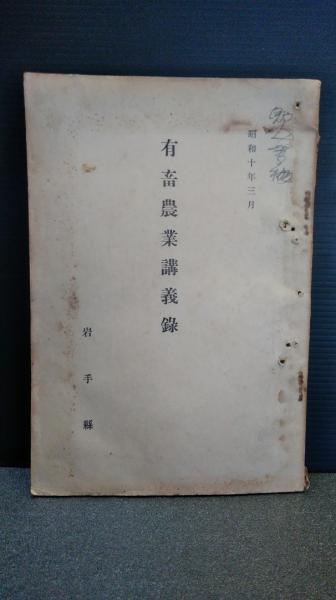 昭和十年三月
有畜農業講義錄
岩手縣